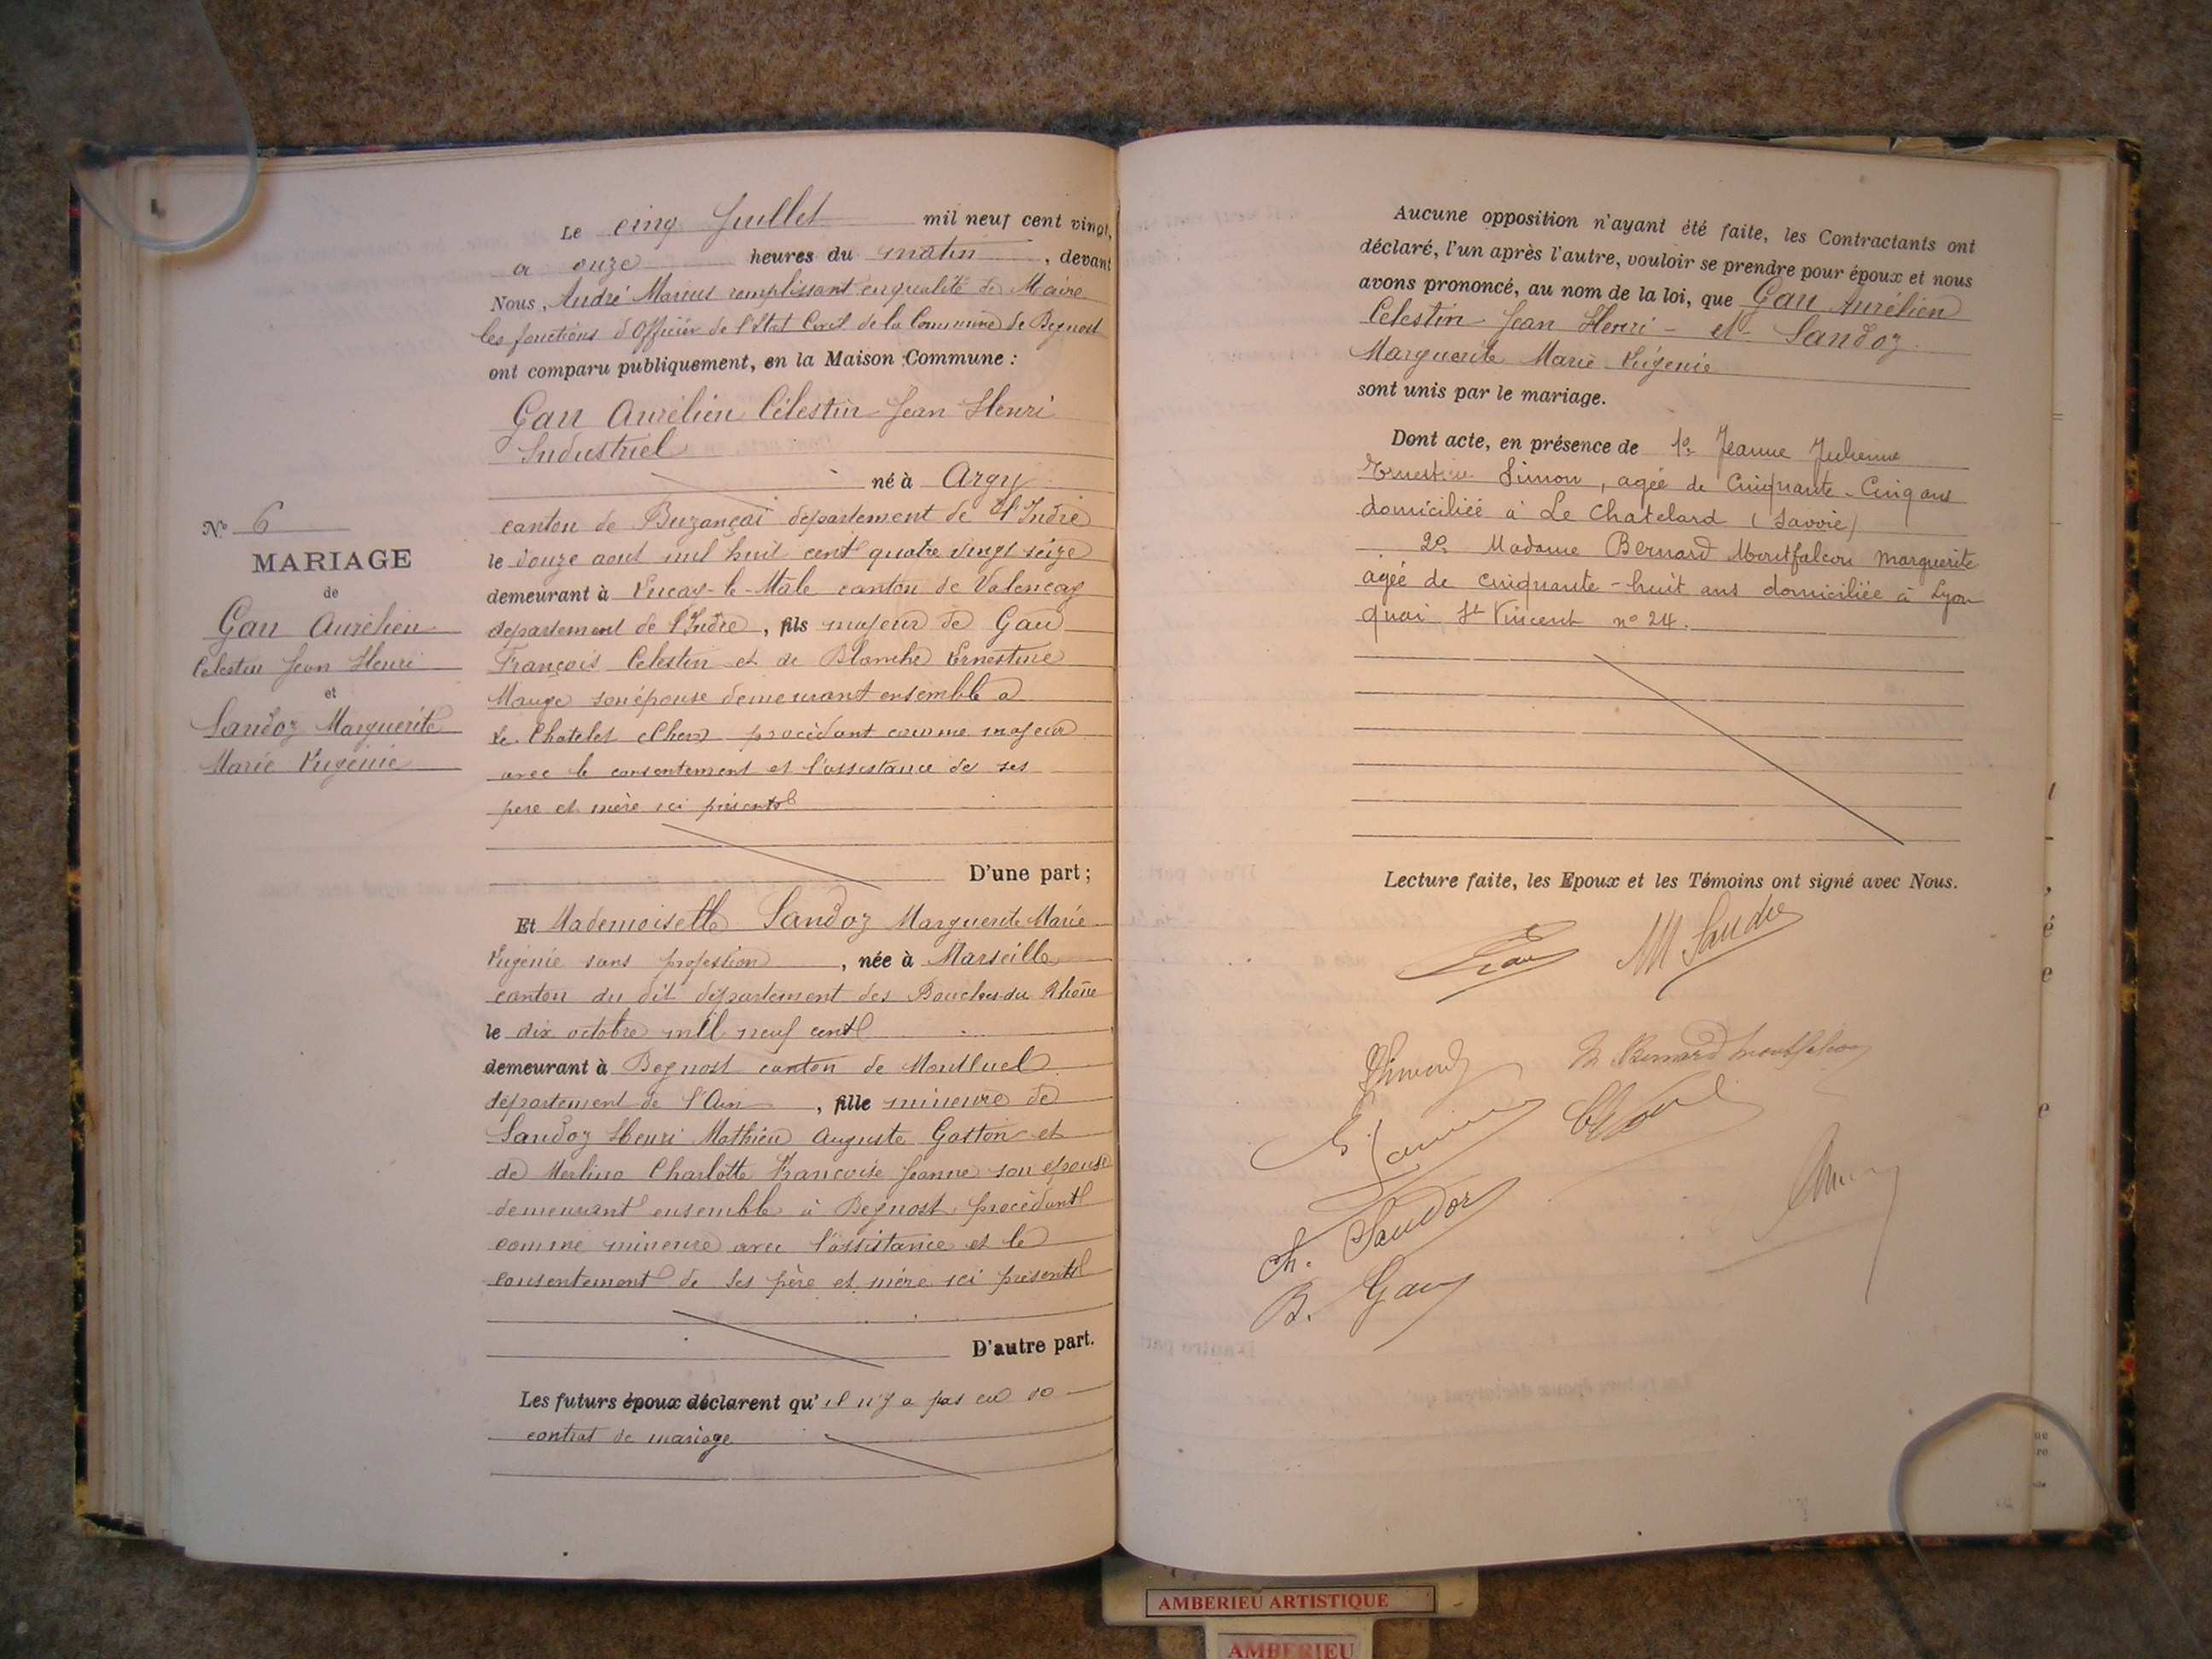 Le cinq Juillet mil neuf cent vingt,
a onze heures du matin, devant
Nous, André Marius remplissant en qualité de Maire
les fonctions d'Officier de l'Etat Civil de la Commune de Beynost
ont comparu publiquement, en la Maison Commune :
Gau Aurélien Célestin Jean Henri
Industriel
né à Argy
canton de Buzançai département de l'Indre
le douze aout mil huit cent quatre vingt seize
demeurant à Lucay-le-Mâle canton de Valencay
département de l'Indre, fils majeur de Gau
François Celestin et de Blanche Ernestine
Mauge son épouse demeurant ensemble a
Le Chatelet (Cher) procédant comme majeur
avec le consentement et l'assistance de ses
père et mère ici présents
D'une part ;
Et Mademoiselle Sandoz Marguerite Marie
Eugénie sans profession, née à Marseille
canton du dit département des Bouches du Rhône
le dix octobre mil neuf cent
demeurant à Beynost canton de Montluel
département de l'Ain, fille mineure de
Sandoz Henri Mathieu Auguste Gaston et
de Merlino Charlotte Françoise Jeanne son épouse
demeurant ensemble à Beynost, procédant
comme mineure avec l'assistance et le
consentement de ses père et mère ici présents
D'autre part.
Les futurs époux déclarent qu'il n'y a pas eu
contrat de mariage
N° 6
MARIAGE
de
Gau Aurélien
Célestin Jean Henri
et
Sandoz Marguerite
Marie Eugénie
Aucune opposition n'ayant été faite, les Contractants ont
déclaré, l'un après l'autre, vouloir se prendre pour époux et nous
avons prononcé, au nom de la loi, que Gau Aurélien
Célestin Jean Henri - et Sandoz
Marguerite Marie Eugénie
sont unis par le mariage.
Dont acte, en présence de 1º Jeanne Julienne
Ernestine Simon, agée de Cinquante-Cinq ans
domiciliée à Le Chatelard (Savoie)
2º Madame Bernard Montfalcon Marguerite
agée de cinquante-huit ans domiciliée à Lyon
quai St Vincent nº 24.
Lecture faite, les Epoux et les Témoins ont signé avec Nous.
Gau M Sandoz
M Bernard Montfalcon
Ch. Sandoz
B. Gau
AMBERIEU ARTISTIQUE
AMBERIEU